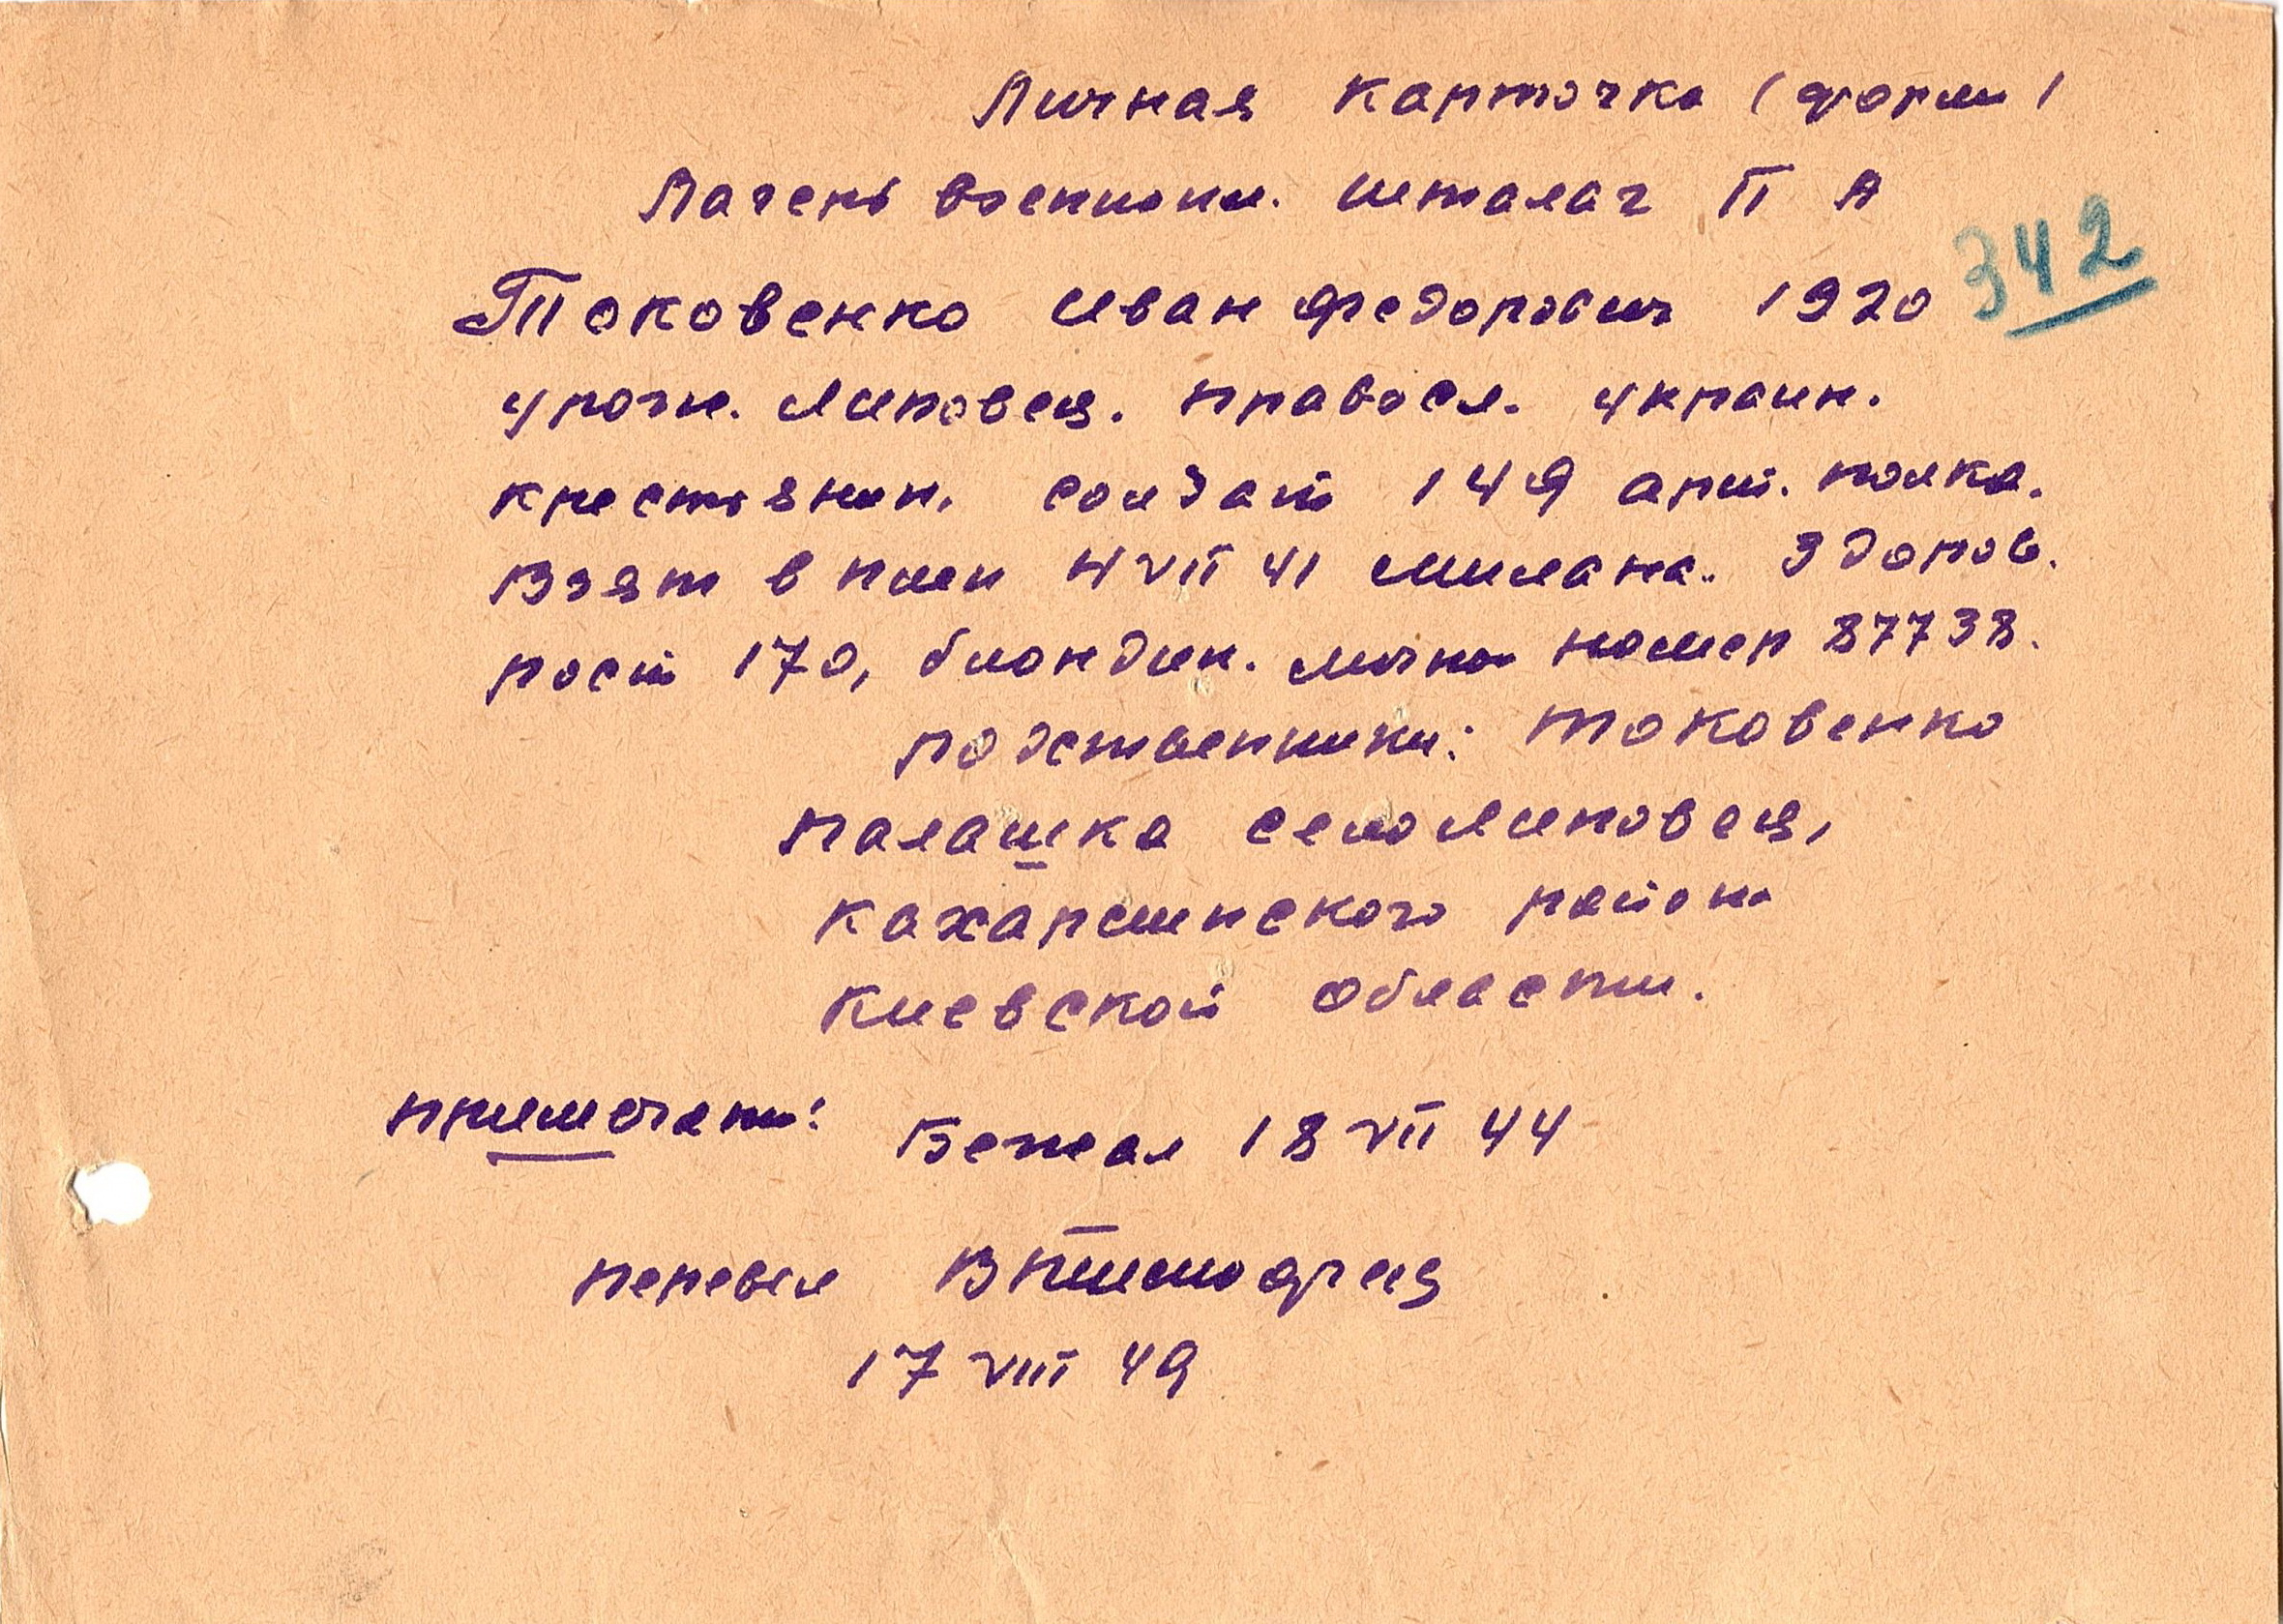 Личная карточка (форма)
Лагерь военнопл. шталаг II А
342
Токовенко Иван Федорович 1920
урож. Липовец. правосл. украин.
крестьянин. солдат 149 арт. полка.
Взят в плен 4 VII 41 Милана. Здоров.
рост 170, блондин. личн номер 87738.
Родственники: Токовенко
Палашка село Липовец,
Кахарлинского района
Киевской области.
Примечани: Бежал 18 VII 44
перевел
17 VIII 49